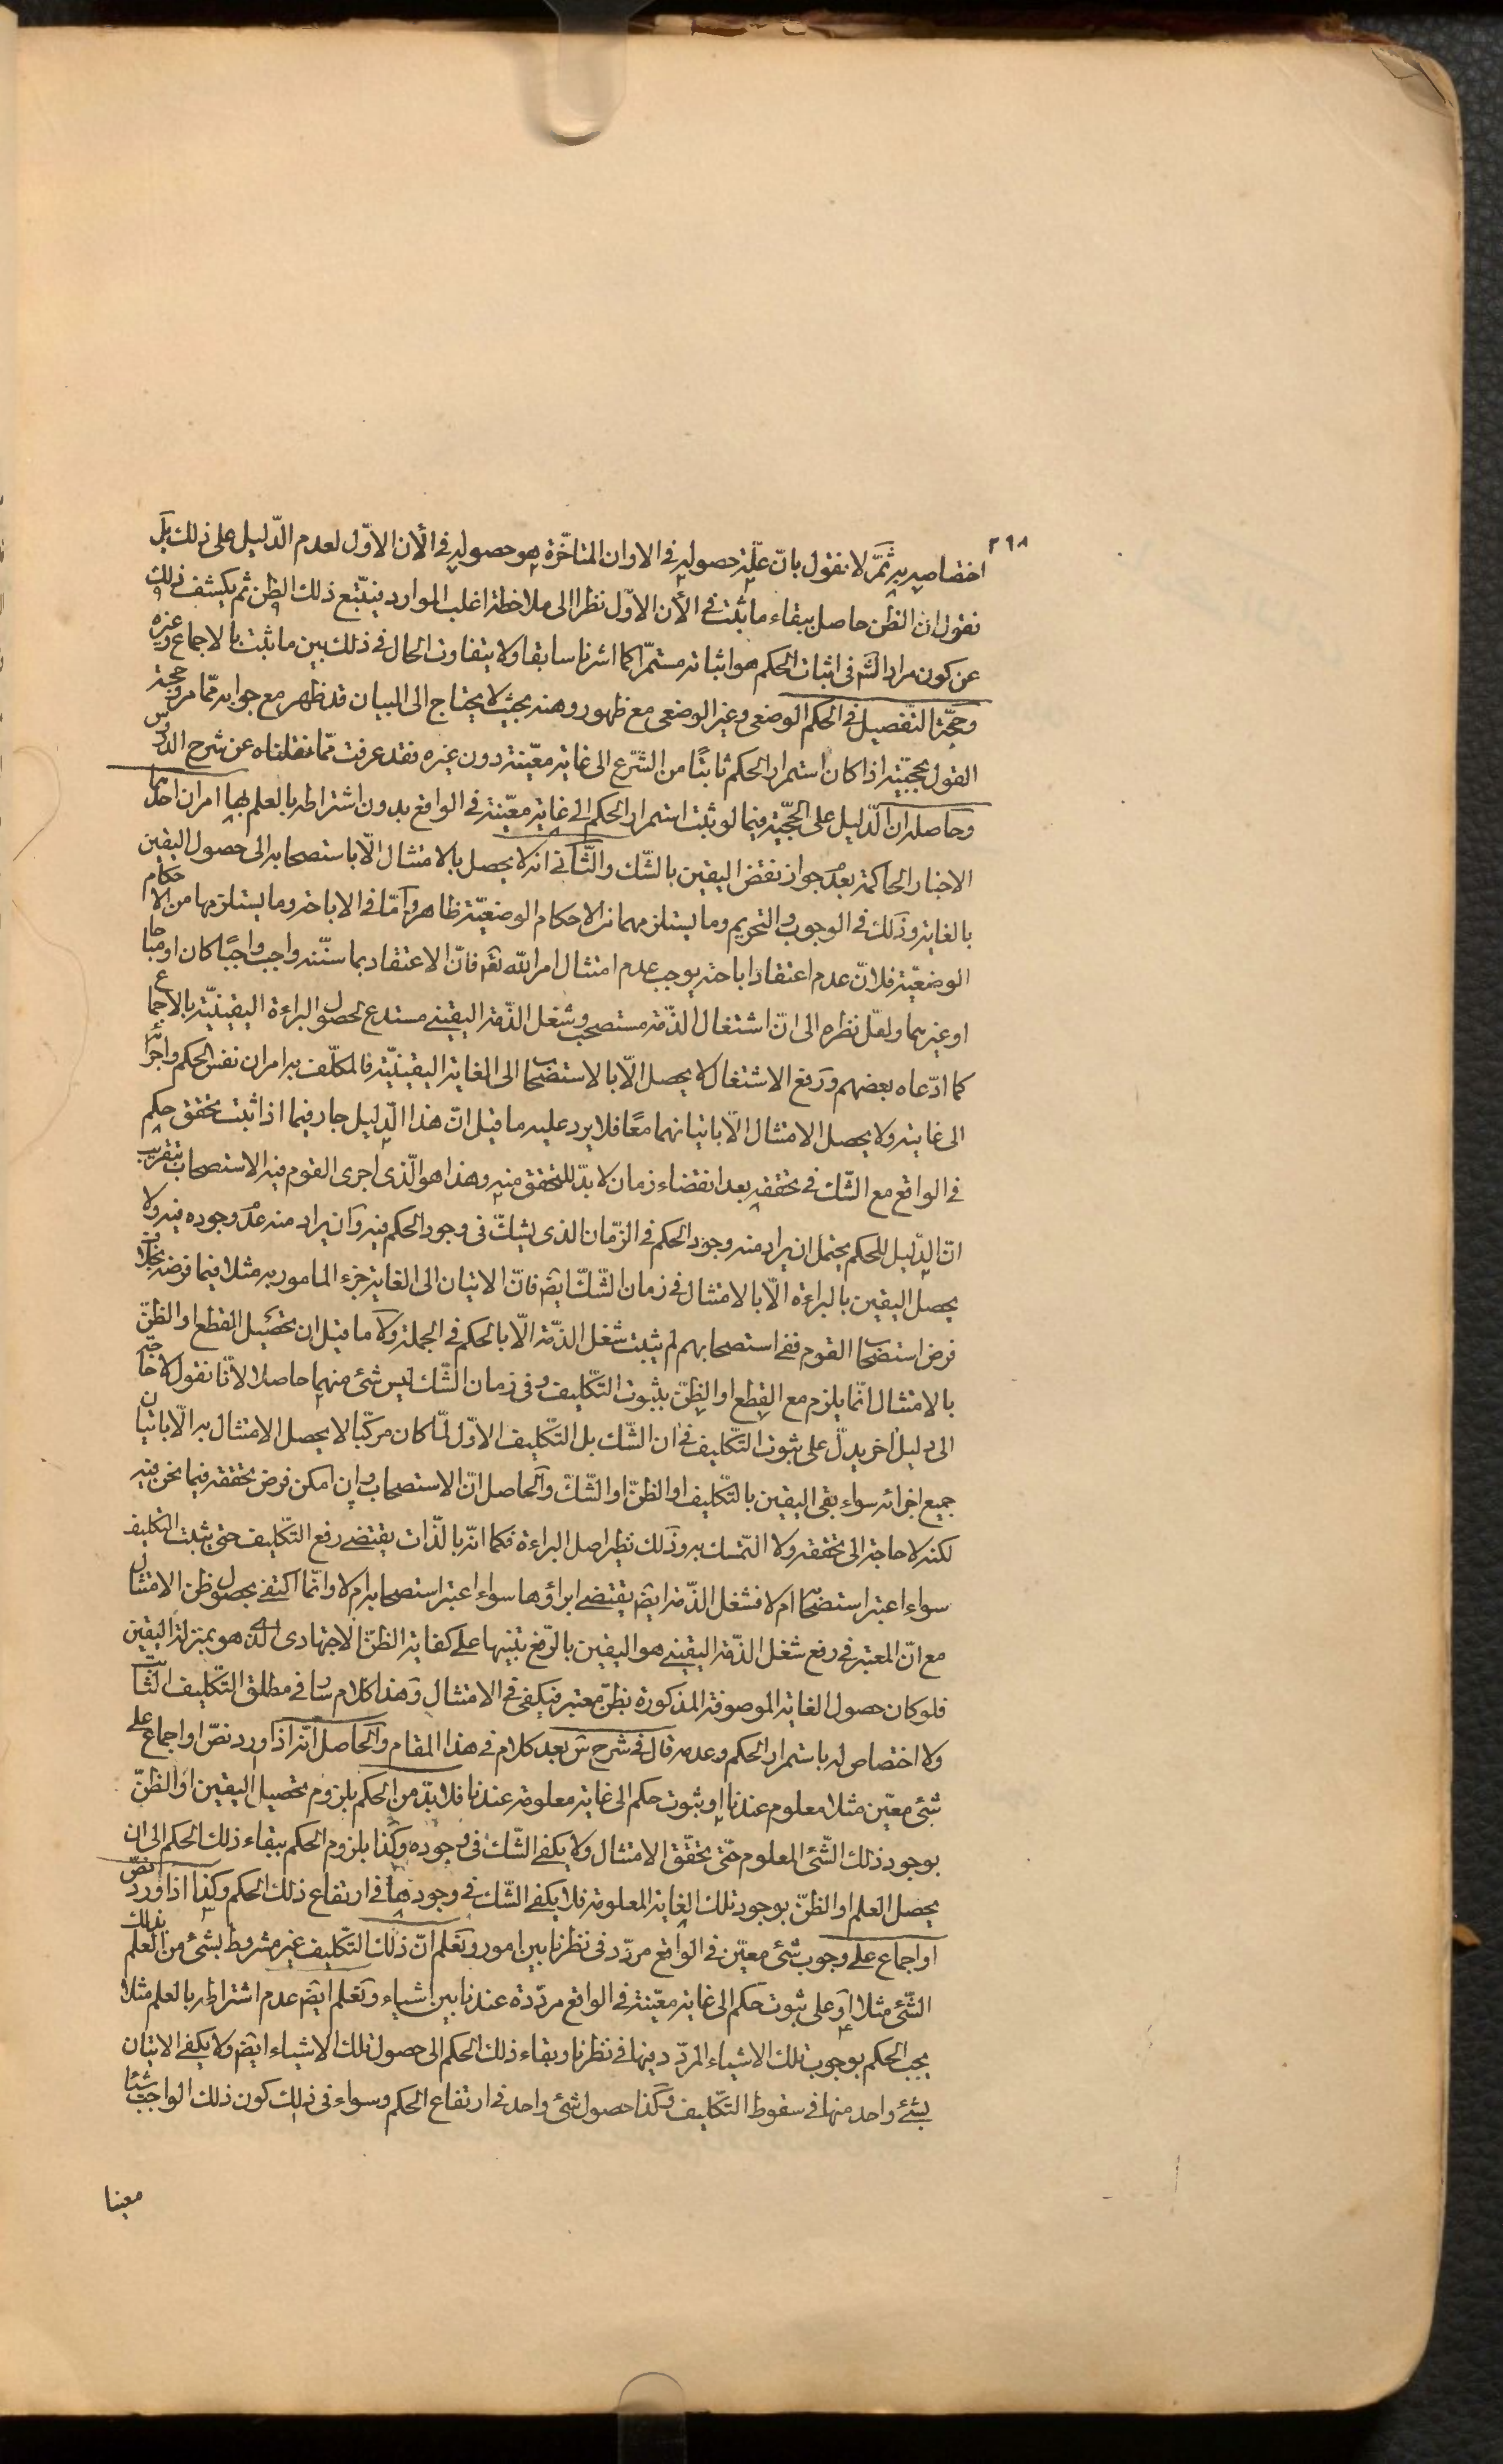 ٢٩٨
اختصاصه به ثمّ لا نقول بانّ علّية حصوله فى الاوان المتاخّرة هو حصوله فى الآن الاوّل لعدم الدّليل على ذلك بل
نقول ان الظن حاصل ببقاء ما ثبت فى الآن الاوّل نظرا الى ملاحظة اغلب الموارد فيتّبع ذلك الظن ثم يكشف ذلك
عن كون مراد الش فى اثبات الحكم هو اثباته مستمرّا كما اشرنا سابقا ولا يتفاوت الحال فى ذلك بين ما ثبت بالاجماع وغيره
وحجّة التفصيل فى الحكم الوضعى وغير الوضعى مع ظهور وهنه بحيث لا يحتاج الى البيان قد ظهر مع جوابه ممّا مر وحجة
القول بحجيّته اذا كان استمرار الحكم ثابتًا من الشّرع الى غاية معيّنة دون غيره فقد عرفت ممّا نقلناه عن شرح الدروس
وحاصله ان الدّليل على الحجّية فيما لو ثبت استمرار الحكم الى غاية معيّنة فى الواقع بدون اشتراطه بالعلم بها امران احدهما
الاخبار الحاكمة بعدم جواز نقض اليقين بالشّك والثّانى انه لا يحصل بالامتثال الّا باستصحابه الى حصول اليقين
بالغاية وذلك فى الوجوب والتحريم وما يستلزمهما من الاحكام الوضعيّة ظاهر وامّا فى الاباحة وما يستلزمها من الاحكام
الوضعيّة فلانّ عدم اعتقاد اباحته يوجب عدم امتثال امر الله تعالى فانّ الاعتقاد بما سنّنه واجب واجبًا كان او مباحا
او غيرهما ولعلّ نظره الى انّ اشتغال الذّمة مستصحب وشغل الذّمة اليقينى مستدع لحصول البراءة اليقينيّة بالاجماع
كما ادّعاه بعضهم ورفع الاشتغال لا يحصل الّا بالاستصحاب الى الغاية اليقينيّة فالمكلّف به امران نفس الحكم واجرائه
الى غايته ولا يحصل الامتثال الّا باتيانهما معًا فلا يرد عليه ما قيل انّ هذا الدّليل جار فيما اذا ثبت تحقق حكم
فى الواقع مع الشّك فى تحققه بعد انقضاء زمان لا بدّ للتحقق منه وهذا هو الّذى اجرى القوم فيه الاستصحاب بتقريب
انّ الدّليل للحكم يحتمل ان يراد منه وجود الحكم فى الزّمان الذى يشكّ فى وجود الحكم فيه وان يراد منه عدم وجوده فيه ولا
يحصل اليقين بالبراءة الّا بالامتثال فى زمان الشّكّ ايضا فانّ الاتيان الى الغاية جزء المامور به مثلا فيما فرضه بخلاف
فرض استصحاب القوم ففى استصحابهم لم يثبت شغل الذّمة الّا بالحكم فى الجملة ولا ما قيل ان تحصيل القطع او الظنّ
بالامتثال انّما يلزم مع القطع او الظنّ بثبوت التّكليف وفى زمان الشّك ليس شئ منهما حاصلا لانّا نقول لا حاجة
الى دليل اخر يدلّ على ثبوت التّكليف فى ان الشّك بل التّكليف الاوّل لمّا كان مركّبا لا يحصل الامتثال به الّا باتيان
جميع اجزائه سواء بقى اليقين بالتّكليف او الظنّ او الشّكّ والحاصل انّ الاستصحاب وان امكن فرض تحققه فيما نحن فيه
لكنه لا حاجة الى تحققه ولا التمسك به وذلك نظير اصل البراءة فكما انّه بالذّات يقتضى رفع التّكليف حتى يثبت التكليف
سواء اعتبر استصحابه ام لا فشغل الذّمة ايضا يقتضى ابراؤها سواء اعتبر استصحابه ام لا وانّما اكتفى بحصول ظن الامتثال
مع انّ المعتبر فى رفع شغل الذّمة اليقينى هو اليقين بالرّفع تنبيها على كفاية الظنّ الاجتهادى الذى هو بمنزلة اليقين
فلو كان حصول الغاية الموصوفة المذكورة بظنّ معتبر فيكفى فى الامتثال وهذا كلام سار فى مطلق التّكليف الثابت
ولا اختصاص له باستمرار الحكم وعدمه قال فى شرح س بعد كلام فى هذا المقام والحاصل انّه اذا ورد نصّ او اجماع على
شئ معيّن مثلا معلوم عندنا او ثبوت حكم الى غاية معلومة عندنا فلا بدّ من الحكم بلزوم تحصيل اليقين او الظنّ
بوجود ذلك الشّئ المعلوم حتّى يتحقّق الامتثال ولا يكفى الشّك فى وجوده وكذا بلزوم الحكم ببقاء ذلك الحكم الى ان
يحصل العلم او الظنّ بوجود تلك الغاية المعلومة فلا يكفى الشّك فى وجودها فى ارتفاع ذلك الحكم وكذا اذا ورد نصّ
او اجماع على وجوب شئ معيّن فى الواقع مردّد فى نظرنا بين امور ونعلم انّ ذلك التّكليف غير مشروط بشئ من العلم بذلك
الشّئ مثلا او على ثبوت حكم الى غاية معيّنة فى الواقع مردّدة عندنا بين اشياء ونعلم ايضا عدم اشتراطه بالعلم مثلا
يجب الحكم بوجوب تلك الاشياء المردّد فيها فى نظرنا وبقاء ذلك الحكم الى حصول تلك الاشياء ايضا ولا يكفى الاتيان
بشئ واحد منها فى سقوط التّكليف وكذا حصول شئ واحد فى ارتفاع الحكم وسواء فى ذلك كون ذلك الواجب شيئا
معينا